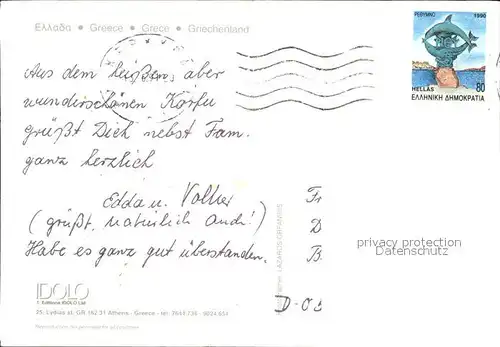 Ελλάδα • Greece • Grece • Griechenland
ΡΕΘΥΜΝΟ 1990
HELLAS 80
ΕΛΛΗΝΙΚΗ ΔΗΜΟΚΡΑΤΙΑ
Aus dem heißen aber
wunderschönen Korfu
grüßt Dich nebst Fam.
ganz herzlich
Edda u. Volker
(grüßt natürlich auch!)
Habe es ganz gut überstanden.
privacy protection
Datenschutz
D-O
IDOLO
25, Lydias st. GR 162.31 Athens - Greece - tel: